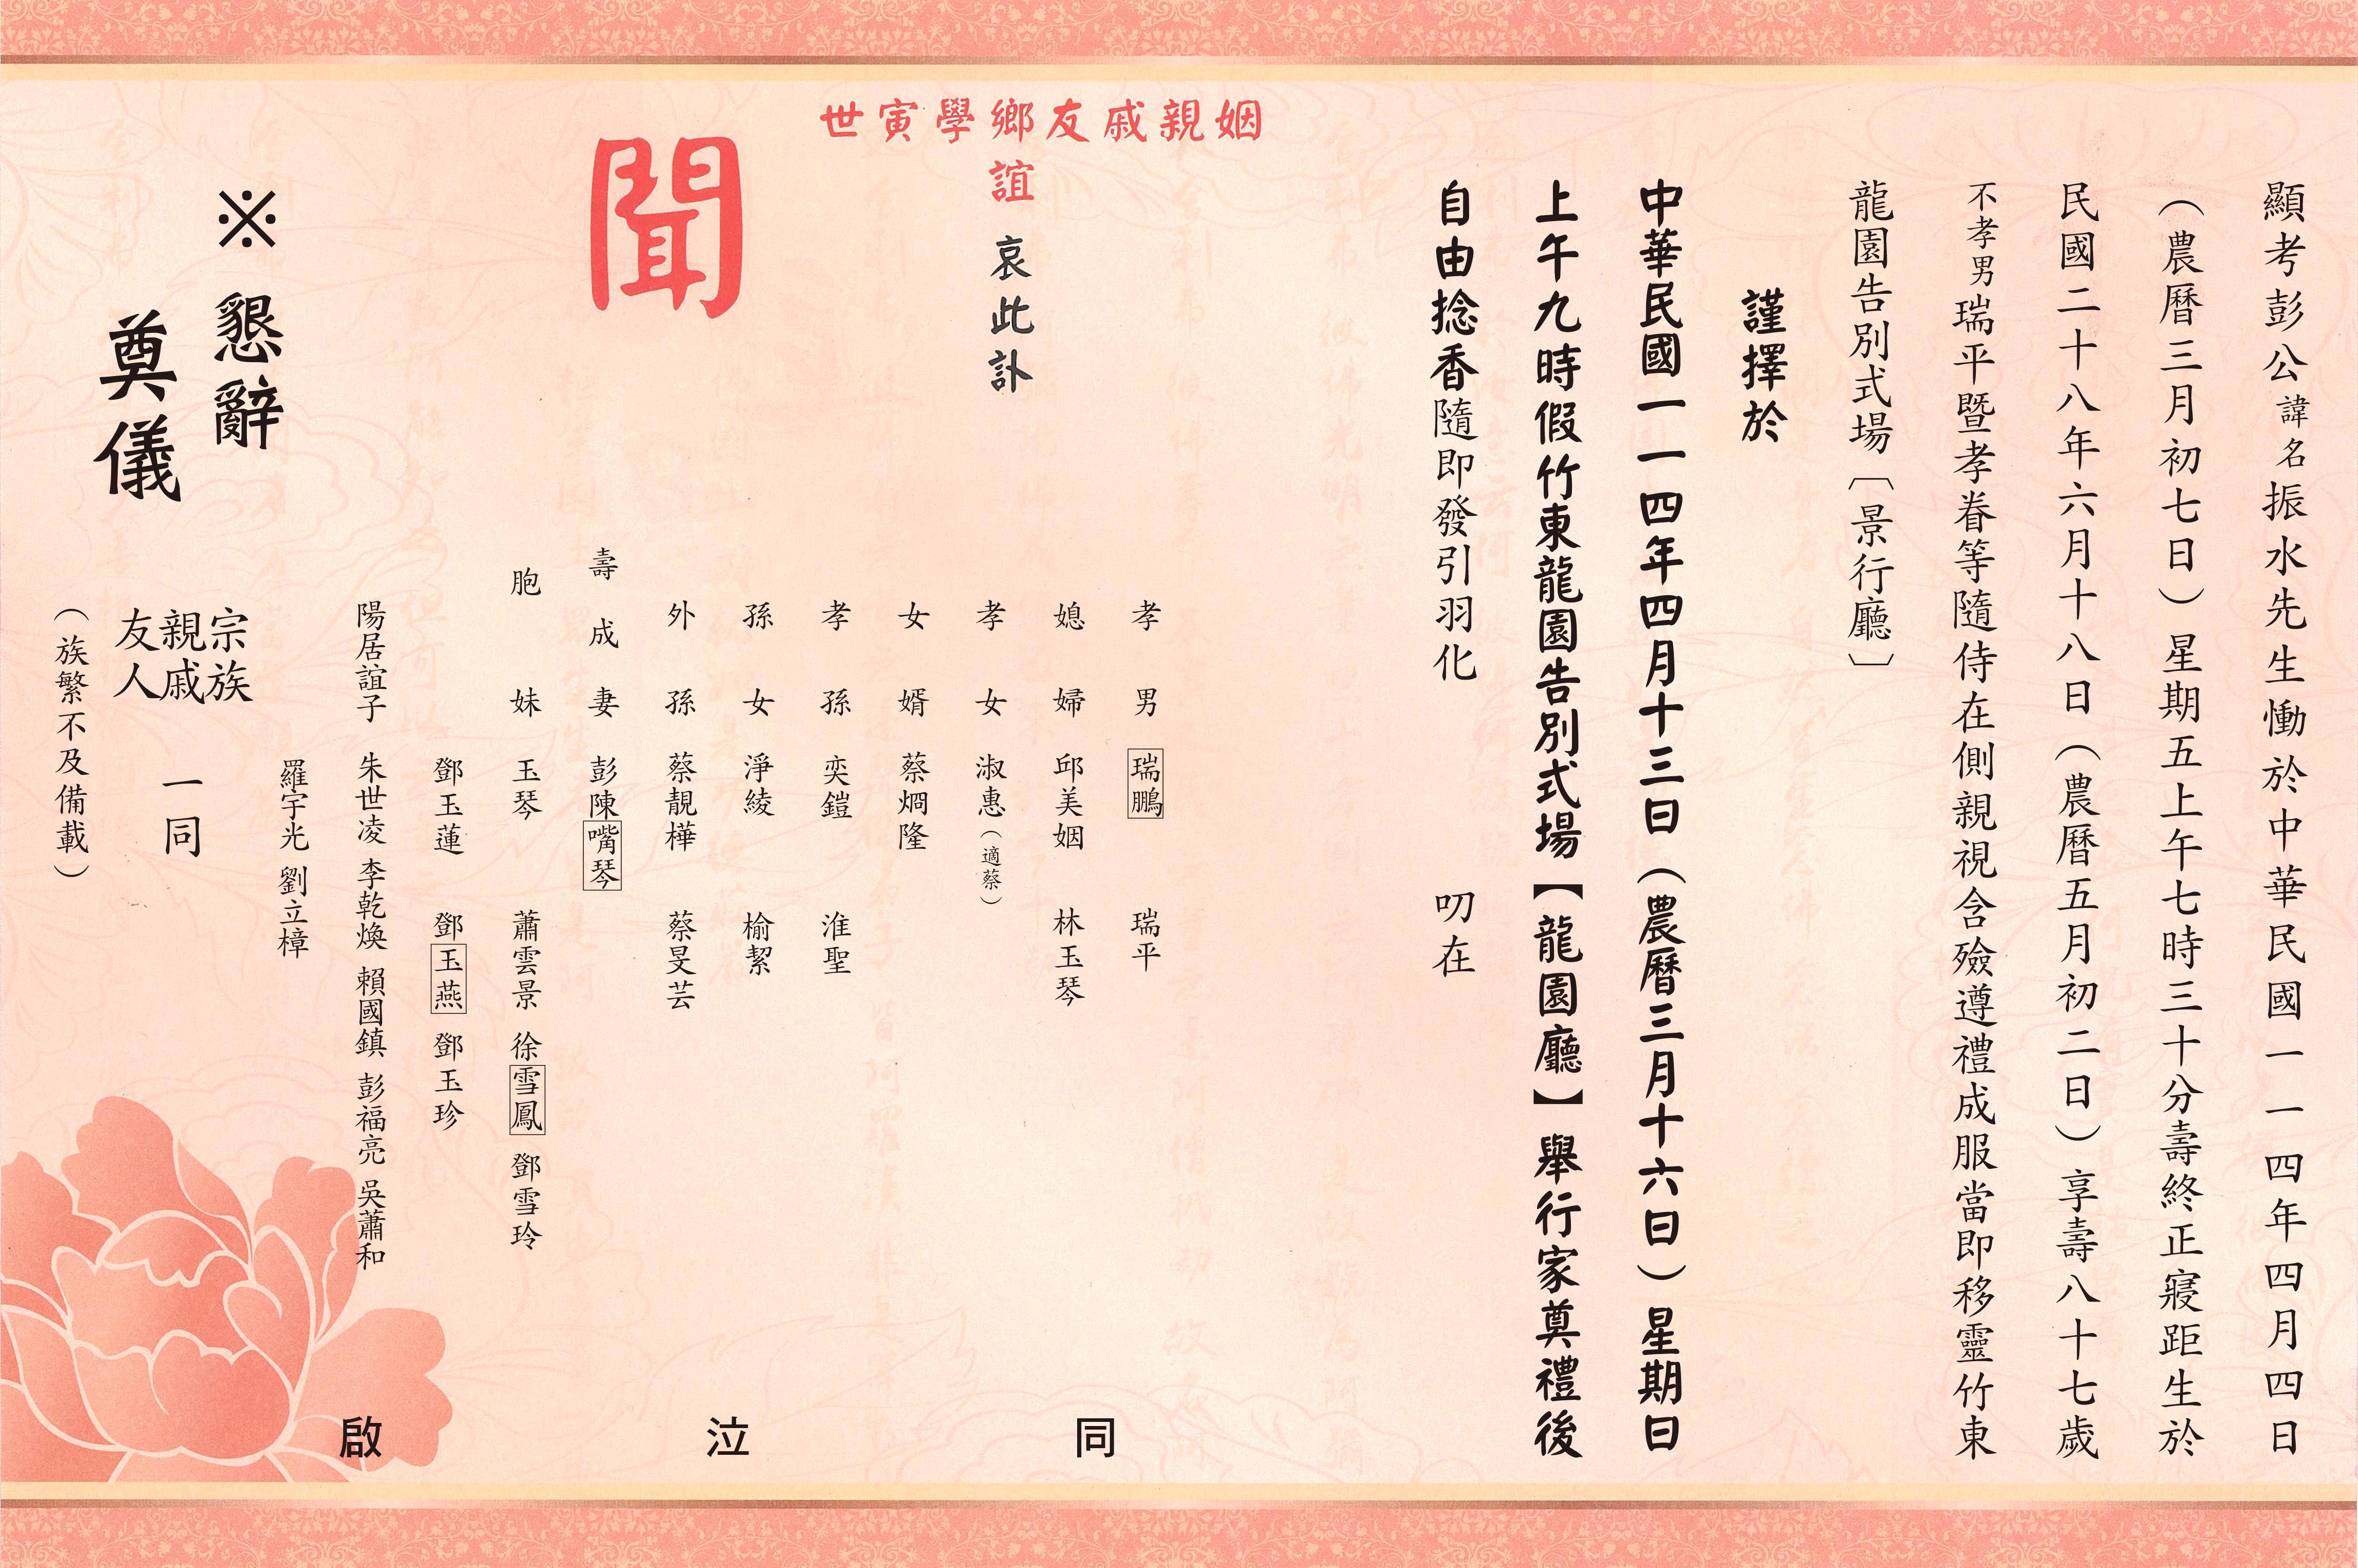 顯考彭公諱名振水先生慟於中華民國一一四年四月四日
（農曆三月初七日）星期五上午七時三十分壽終正寢距生於
民國二十八年六月十八日（農曆五月初二日）享壽八十七歲
不孝男瑞平暨孝眷等隨侍在側親視含殮遵禮成服當即移靈竹東
龍園告別式場〔景行廳〕
謹擇於
中華民國一一四年四月十三日（農曆三月十六日）星期日
上午九時假竹東龍園告別式場【龍園廳】舉行家奠禮後
自由捻香隨即發引羽化 叨在
姻親戚友鄉學寅世
誼 哀此訃
聞
孝男 瑞鵬 瑞平
媳婦 邱美姻 林玉琴
孝女 淑惠（適蔡）
女婿 蔡烱隆
孝孫 奕鎧 淮聖
孫女 淨綾 榆絜
外孫 蔡靚樺 蔡旻芸
壽成妻 彭陳嘴琴
胞妹 玉琴 蕭雲景 徐雪鳳 鄧雪玲
鄧玉蓮 鄧玉燕 鄧玉珍
陽居誼子 朱世凌 李乾煥 賴國鎮 彭福亮 吳蕭和
羅宇光 劉立樟
同泣啟
※懇辭
奠儀
宗族
親戚 一同
友人
（族繁不及備載）